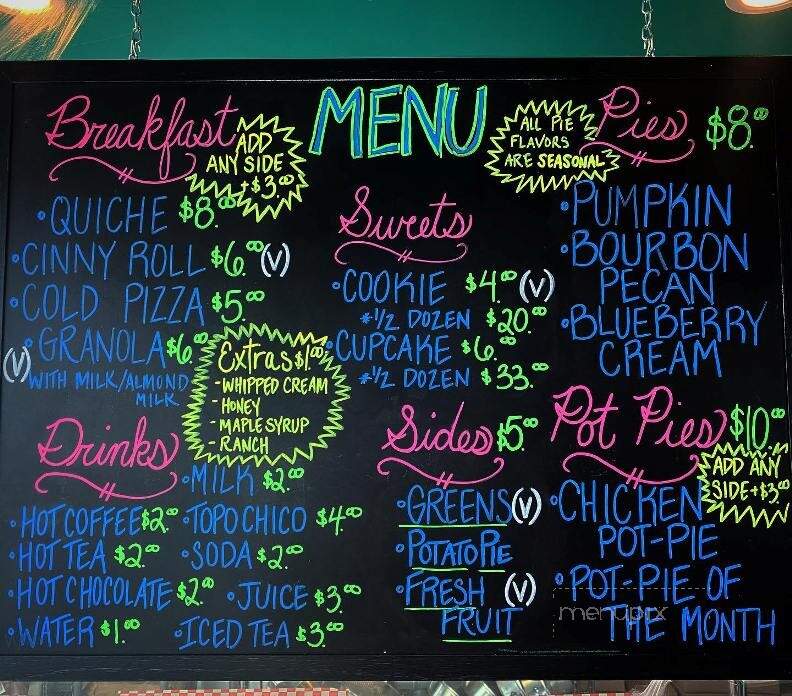 MENU
Breakfast
ADD
ANY SIDE
+$3.00
•QUICHE $8.00
•CINNY ROLL $6.00 (V)
•COLD PIZZA $5.00
(V) •GRANOLA $6.00
WITH MILK/ALMOND
MILK
Extras $1.00
-WHIPPED CREAM
-HONEY
-MAPLE SYRUP
-RANCH
Drinks
•MILK $2.00
•HOT COFFEE $2.00 •TOPO CHICO $4.00
•HOT TEA $2.00 •SODA $2.00
•HOT CHOCOLATE $2.00 •JUICE $3.00
•WATER $1.00 •ICED TEA $3.00
Sweets
•COOKIE $4.00 (V)
*1/2 DOZEN $20.00
•CUPCAKE $6.00
*1/2 DOZEN $33.00
Sides $5.00
•GREENS (V)
•POTATO PIE
•FRESH (V)
FRUIT
ALL PIE
FLAVORS
ARE SEASONAL
Pies $8.00
•PUMPKIN
•BOURBON
PECAN
•BLUEBERRY
CREAM
Pot Pies $10.00
ADD ANY
SIDE +$3.00
•CHICKEN
POT-PIE
•POT-PIE OF
THE MONTH
menupix